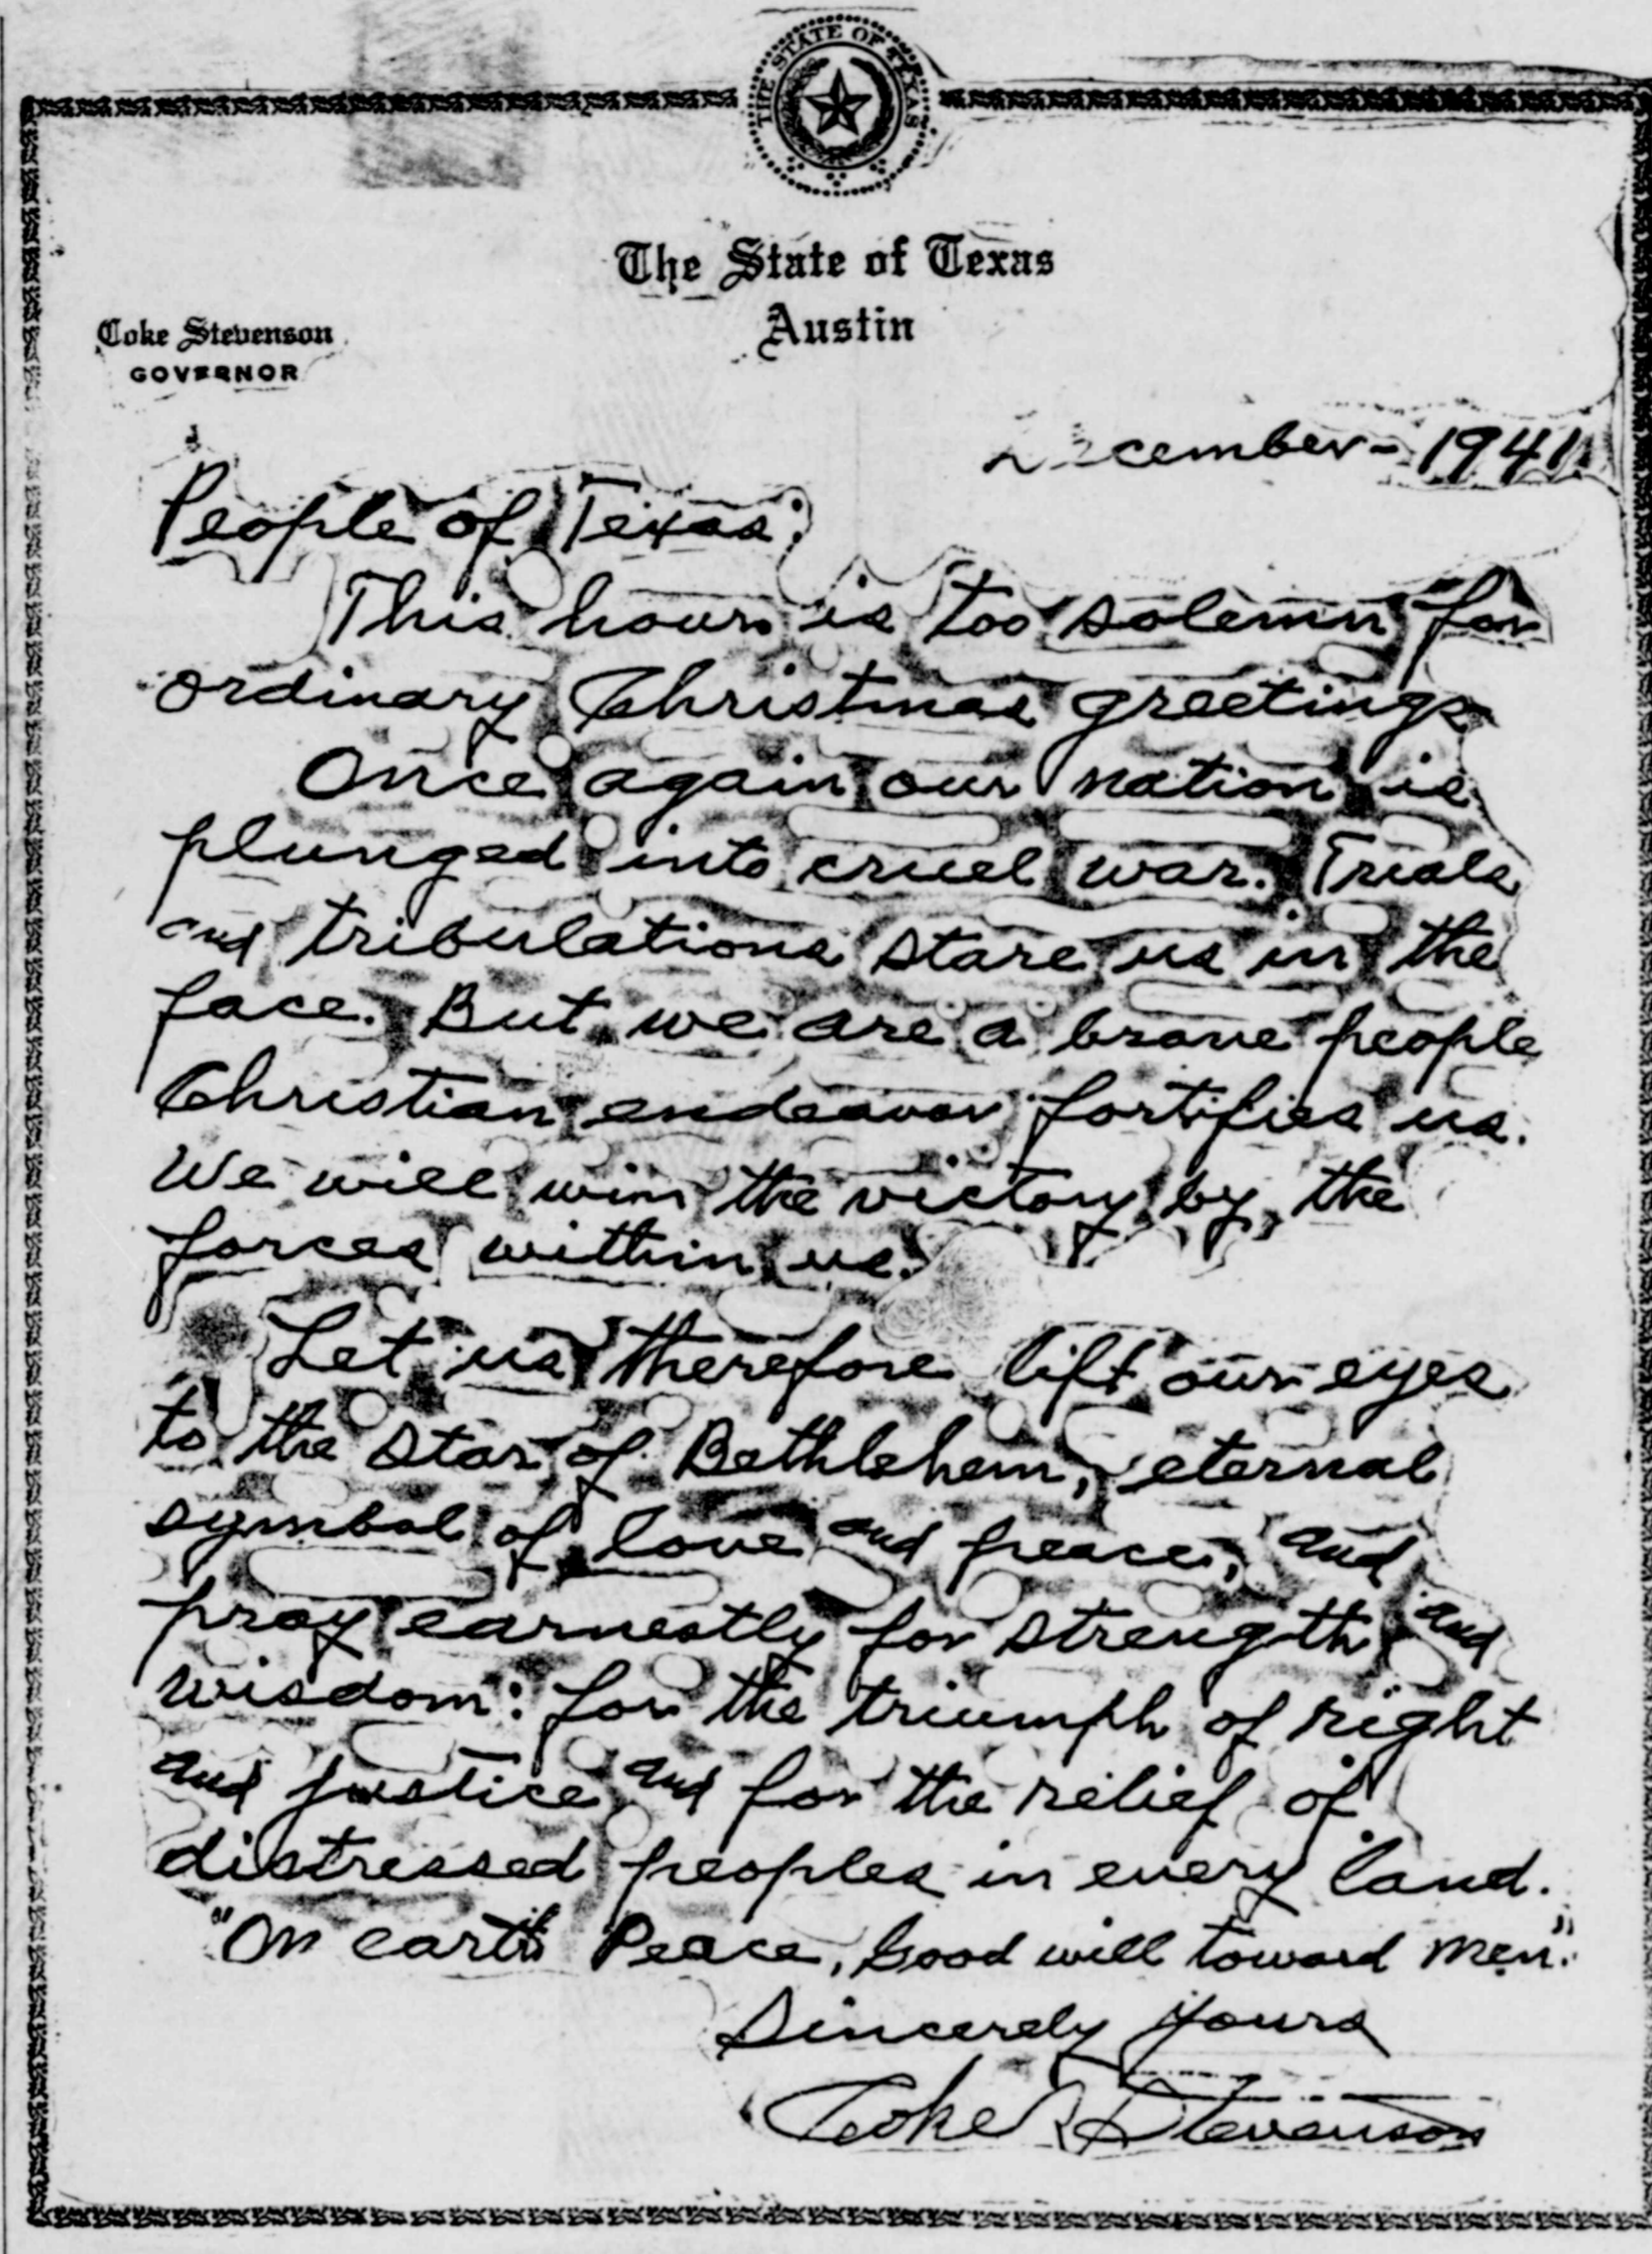 THE STATE OF TEXAS
The State of Texas
Austin
Coke Stevenson
GOVERNOR
December - 1941
People of Texas:
This hour is too solemn for
ordinary Christmas greetings
Once again our nation is
plunged into cruel war. Trials
and tribulations stare us in the
face. But we are a brave people
Christian endeavor fortifies us.
We will win the victory by the
forces within us.
Let us therefore lift our eyes
to the star of Bethlehem, eternal
symbol of love and peace, and
pray earnestly for strength and
wisdom: for the triumph of right
and justice and for the relief of
distressed peoples in every land.
"On earth Peace, Good will toward men."
Sincerely yours
Coke R Stevenson